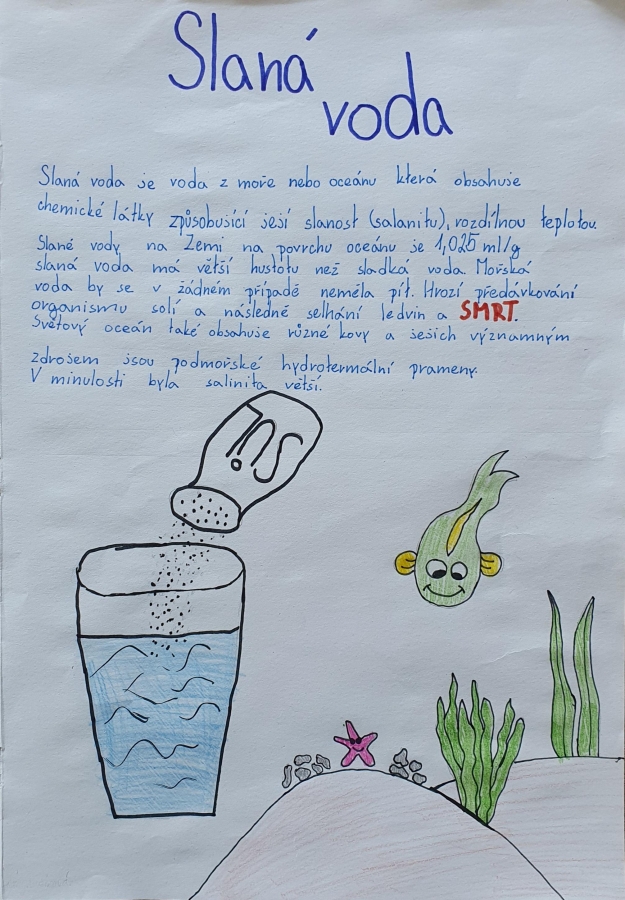 Slaná
voda
Slaná voda je voda z moře nebo oceánu která obsahuje
chemické látky způsobující její slanost (salanitu), rozdílnou teplotou.
Slané vody na Zemi na povrchu oceánu je 1,025 ml/g
slaná voda má větší hustotu než sladká voda. Mořská
voda by se v žádném případě neměla pít. Hrozí předávkování
organismu solí a následné selhání ledvin a SMRT.
Světový oceán také obsahuje různé kovy a jejich významným
zdrojem jsou podmořské hydrotermální prameny.
V minulosti byla salinita větší.
SŮL